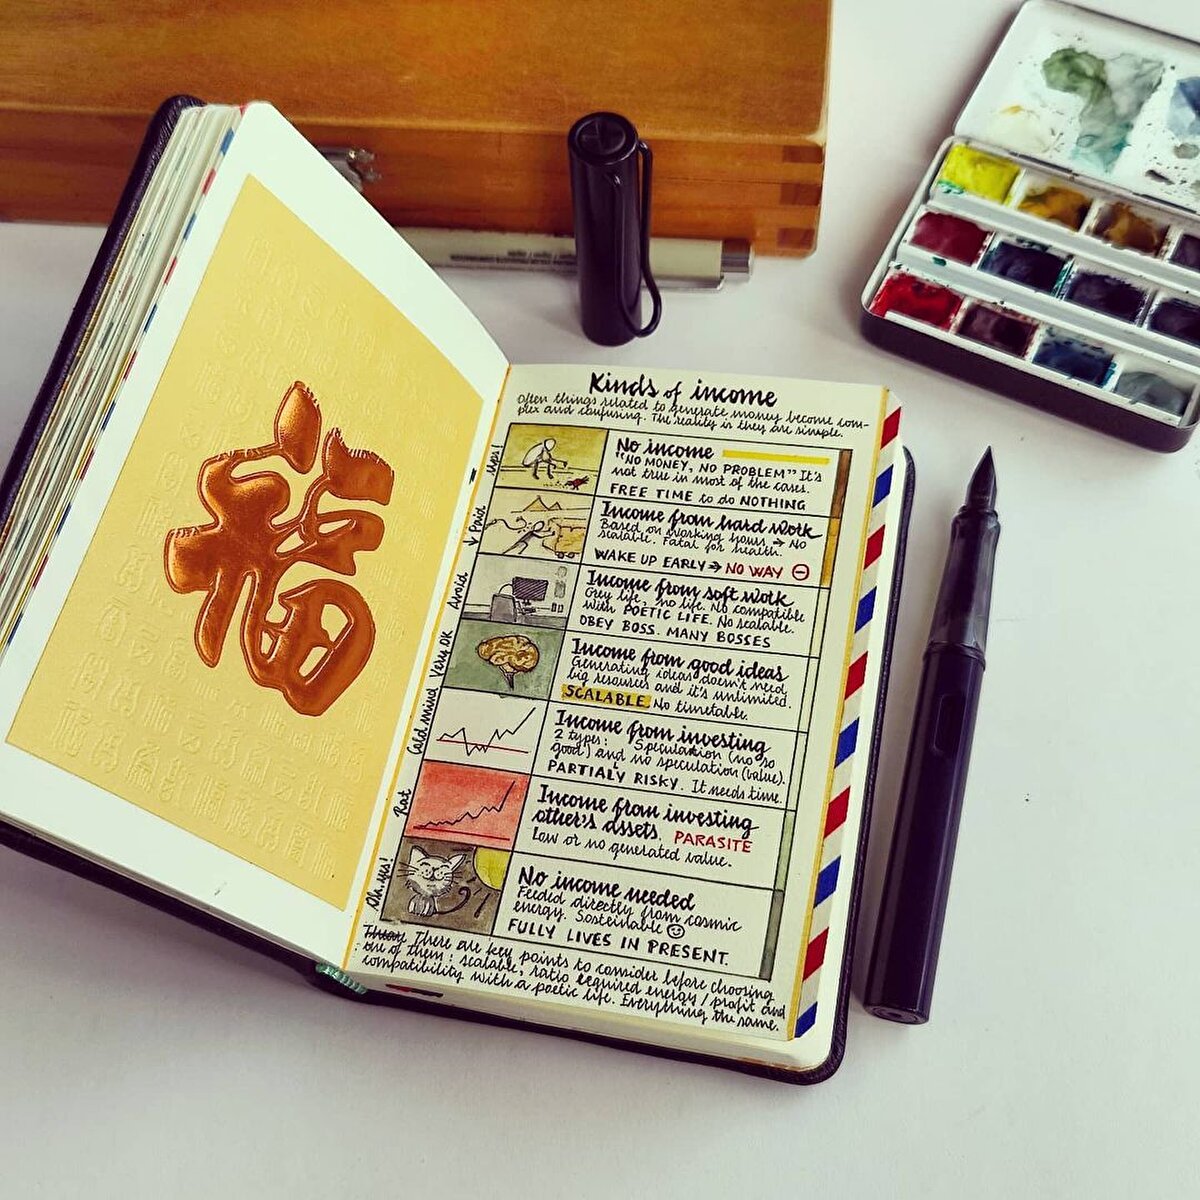 福
Kinds of income
Often things related to generate money become com-
plex and confusing. The reality is they are simple.
No income
"NO MONEY, NO PROBLEM" It's
not true in most of the cases.
FREE TIME to do NOTHING
↓ Paid
Income from hard work
Based on working hours → No
scalable. Fatal for health.
WAKE UP EARLY → NO WAY ⊖
Avoid
Income from soft work
Grey life, no life. No compatible
with POETIC LIFE. No scalable.
OBEY BOSS. MANY BOSSES
Very OK
Income from good ideas
Generating ideas doesn't need
big resources and it's unlimited.
SCALABLE No timetable.
Cold mind
Income from investing
2 types: Speculation (no so
good) and no speculation (value).
PARTIALY RISKY. It needs time.
Rat
Income from investing
other's assets. PARASITE
Low or no generated value.
Oh, yes!
No income needed
Feeded directly from cosmic
energy. Sosteinable ☺
FULLY LIVES IN PRESENT.
There are key points to consider before choosing
one of them: scalable, ratio required energy / profit and
compatibility with a poetic life. Everything the same.